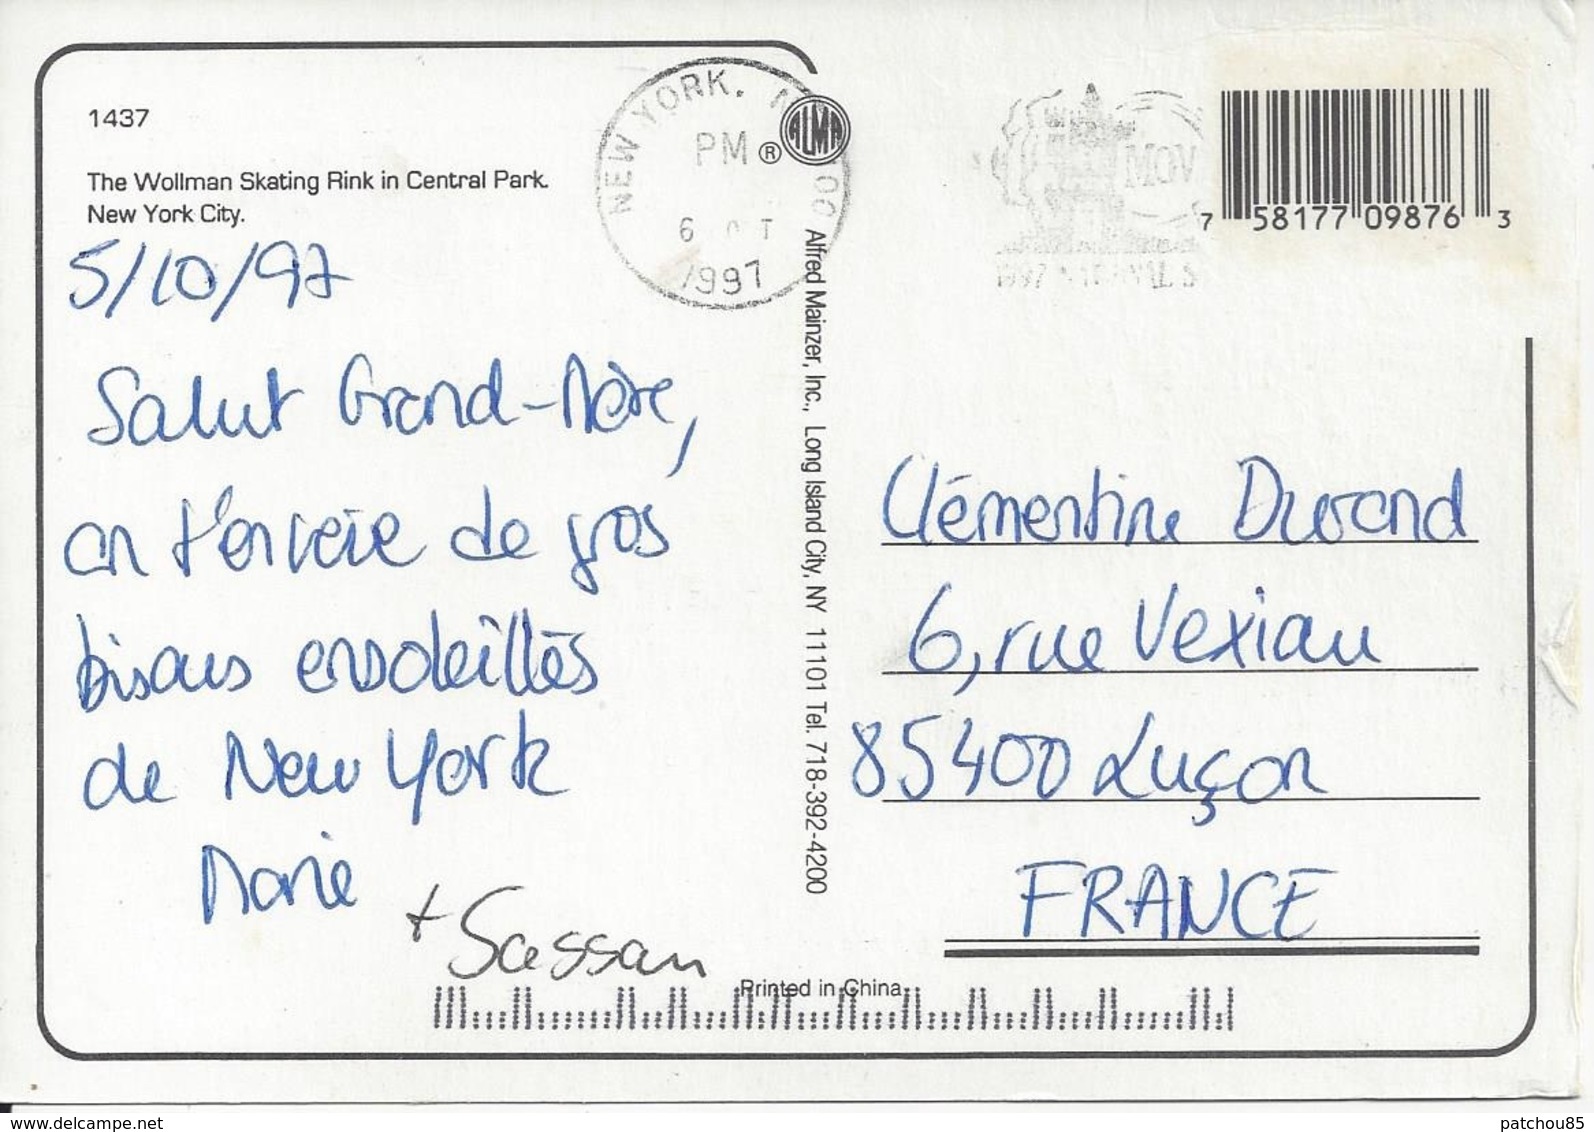 1437
The Wollman Skating Rink in Central Park.
New York City.
5/10/97
Salut Grand-Mère,
on t'envoie de gros
bisous ensoleillés
de New York
Marie
+ Sassan
NEW YORK, N
PM
6
1997
ALMA
®
Alfred Mainzer, Inc., Long Island City, NY 11101 Tel. 718-392-4200
MOV
1997
7 58177 09876 3
Clémentine Durand
6, rue Vexiau
85400 Luçon
FRANCE
Printed in China
patchou85